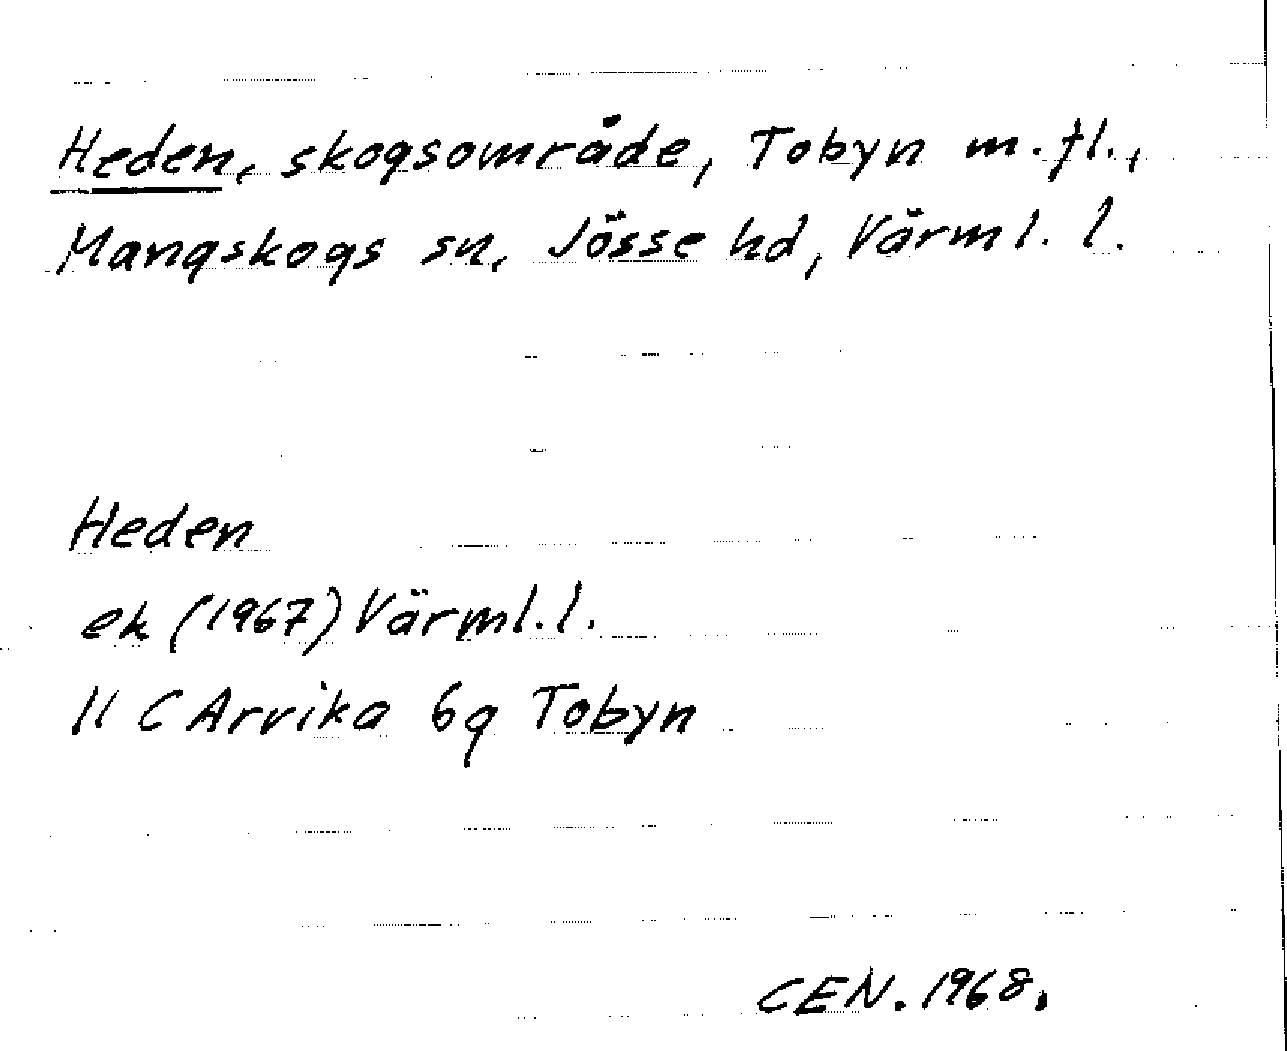 Heden, skogsområde, Tobyn m.fl.,
Mangskogs sn, Jösse hd, Värml. l.
Heden
ek (1967) Värml.l.
11 C Arvika 6g Tobyn
CEN. 1968.